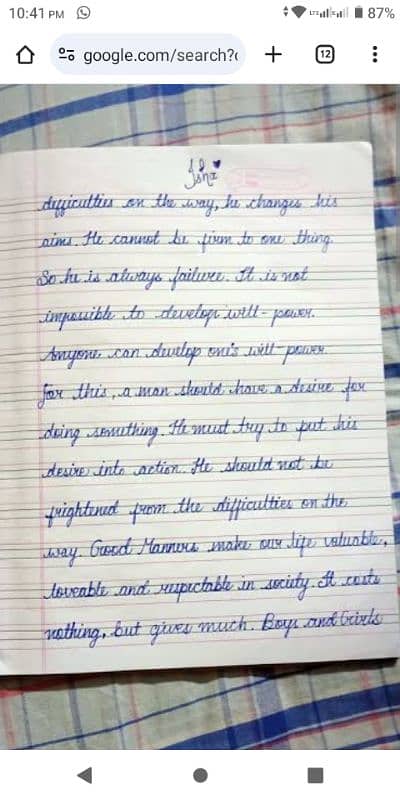 10:41 PM 87%
google.com/search?c 12
Isha
difficulties on the way, he changes his
aims. He cannot be firm to one thing.
So he is always failure. It is not
impossible to develop will-power.
Anyone can develop one's will-power.
for this, a man should have a desire for
doing something. He must try to put his
desire into action. He should not be
frightened from the difficulties on the
way. Good Manners make our life valuable,
loveable and respectable in society. It costs
nothing, but gives much. Boys and Girls